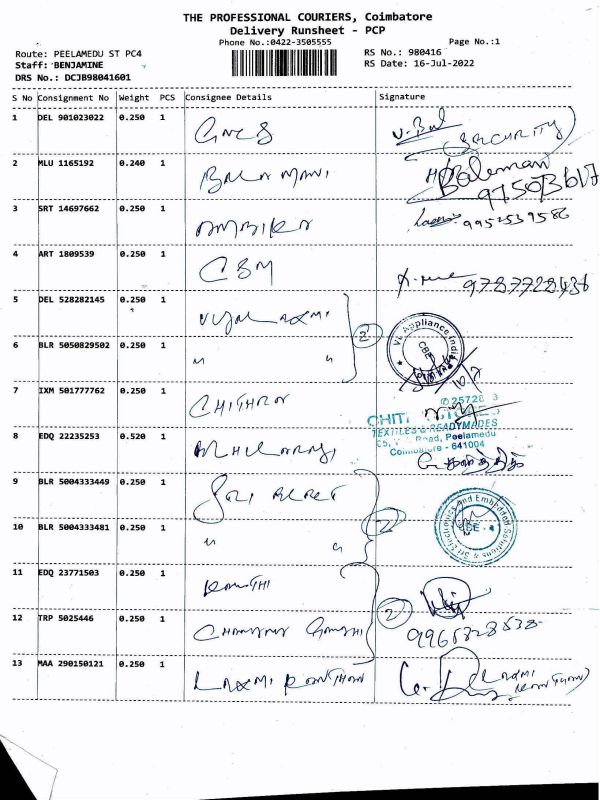 THE PROFESSIONAL COURIERS, Coimbatore
Delivery Runsheet - PCP
Phone No.:0422-3505555
Page No.:1
Route: PEELAMEDU ST PC4
RS No.: 980416
Staff: BENJAMINE
RS Date: 16-Jul-2022
DRS No.: DCJB98041601
S No Consignment No Weight PCS Consignee Details Signature
1 DEL 901023022 0.250 1
(SECURITY)
2 MLU 1165192 0.240 1 BALAMANI
3 SRT 14697662 0.250 1 AMBIKA
9952539586
4 ART 1809539 0.250 1 CBM
9787728438
5 DEL 528282145 0.250 1 VIJAYLAXMI
2
6 BLR 5050829502 0.250 1 " "
VL Appliance India
CBE
7 IXM 501777762 0.250 1 CHITHRA
TEXTILES & READYMADES
Road, Peelamedu
Coimbatore - 641004
8 EDQ 22235253 0.520 1
9 BLR 5004333449 0.250 1
10 BLR 5004333481 0.250 1 " "
2
Sri Electronics and Embedded Solutions
CBE
11 EDQ 23771503 0.250 1
2
12 TRP 5025446 0.250 1
9965328538
13 MAA 290150121 0.250 1 LAXMI KANTHAN
LAXMI
KANTHAN)